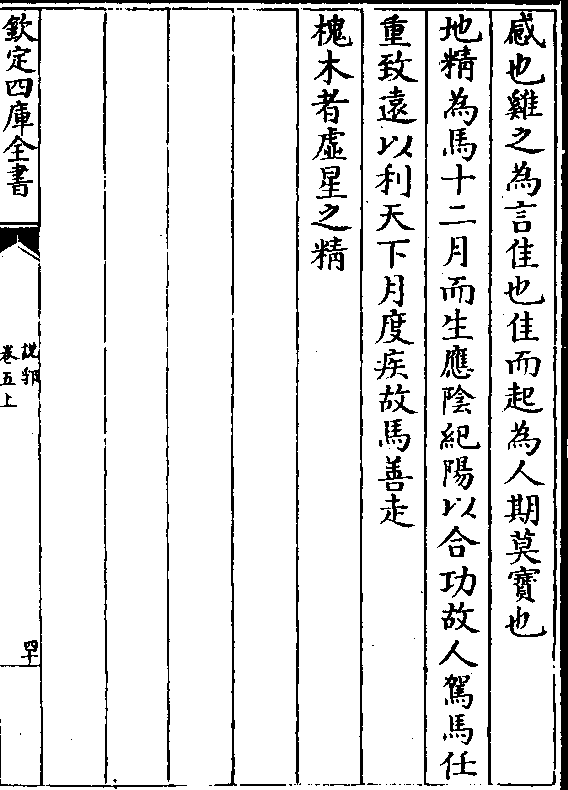 感也雞之為言佳也佳而起為人期莫寳也
地精為馬十二月而生應陰紀陽以合功故人駕馬任
重致逺以利天下月度疾故馬善走
槐木者虛星之精
欽定四庫全書
說郛
卷五上
四十